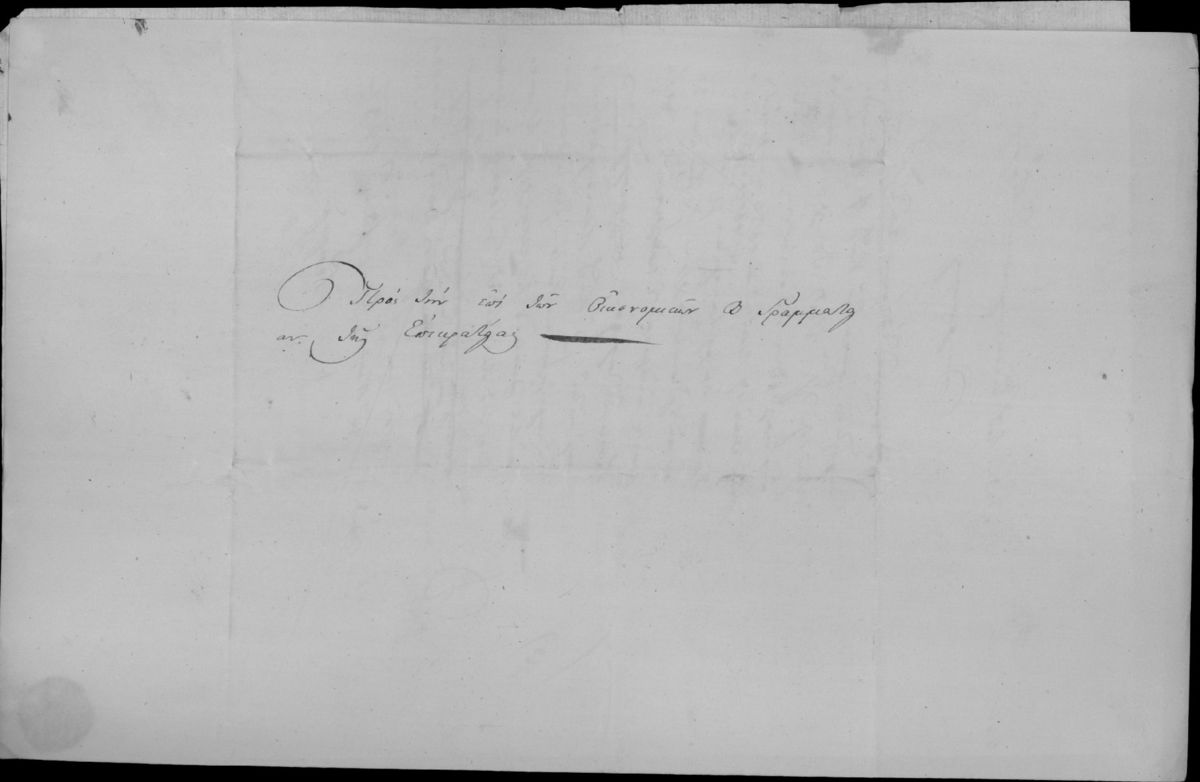 Πρός τὴν ἐπὶ τῶν Οἰκονομικῶν Γραμματεί
αν. τῆς Ἐπικρατείας